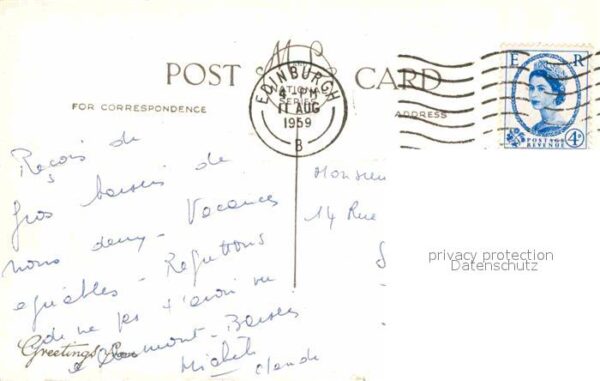 POST CARD
FOR CORRESPONDENCE
ADDRESS
NATIONAL
SERIES
EDINBURGH
11 AUG
1959
B
E R
POSTAGE
REVENUE
4D
Reçois de
gros baisers de
nous deux - Vacances
agréables - Regrettons
de ne pas t'avoir vu
à Clermont - Baisers
Michèle
Claude
Monsieur
14 Rue
Greetings from
privacy protection
Datenschutz